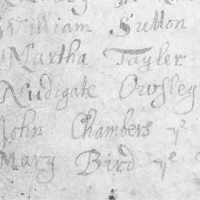 William Sutton
Martha Tayler
Nudigate Owsley
John Chambers ye
Mary Bird ye